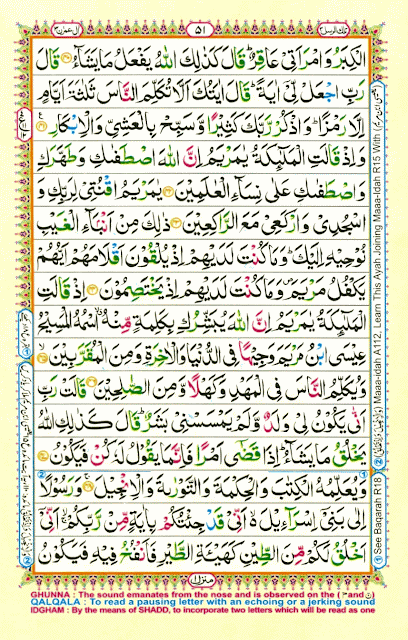 تلك الرسل ٣
٥١
اٰل عمرٰن ٣
الْكِبَرُ وَامْرَاَتِيْ عَاقِرٌ ؕ قَالَ كَذٰلِكَ اللّٰهُ يَفْعَلُ مَا يَشَآءُ ۝ قَالَ
رَبِّ اجْعَلْ لِّيْۤ اٰيَةً ؕ قَالَ اٰيَتُكَ اَلَّا تُكَلِّمَ النَّاسَ ثَلٰثَةَ اَيَّامٍ
اِلَّا رَمْزًا ؕ وَاذْكُرْ رَّبَّكَ كَثِيْرًا وَّسَبِّحْ بِالْعَشِيِّ وَالْاِبْكَارِ ۝
وَاِذْ قَالَتِ الْمَلٰٓئِكَةُ يٰمَرْيَمُ اِنَّ اللّٰهَ اصْطَفٰىكِ وَطَهَّرَكِ
وَاصْطَفٰىكِ عَلٰى نِسَآءِ الْعٰلَمِيْنَ ۝ يٰمَرْيَمُ اقْنُتِيْ لِرَبِّكِ وَ
اسْجُدِيْ وَارْكَعِيْ مَعَ الرّٰكِعِيْنَ ۝ ذٰلِكَ مِنْ اَنْۢبَآءِ الْغَيْبِ
نُوْحِيْهِ اِلَيْكَ ؕ وَمَا كُنْتَ لَدَيْهِمْ اِذْ يُلْقُوْنَ اَقْلَامَهُمْ اَيُّهُمْ
يَكْفُلُ مَرْيَمَ ۪ وَمَا كُنْتَ لَدَيْهِمْ اِذْ يَخْتَصِمُوْنَ ۝ اِذْ قَالَتِ
الْمَلٰٓئِكَةُ يٰمَرْيَمُ اِنَّ اللّٰهَ يُبَشِّرُكِ بِكَلِمَةٍ مِّنْهُ ۖ اسْمُهُ الْمَسِيْحُ
عِيْسَى ابْنُ مَرْيَمَ وَجِيْهًا فِي الدُّنْيَا وَالْاٰخِرَةِ وَمِنَ الْمُقَرَّبِيْنَ ۝
وَيُكَلِّمُ النَّاسَ فِي الْمَهْدِ وَكَهْلًا وَّمِنَ الصّٰلِحِيْنَ ۝ قَالَتْ رَبِّ
اَنّٰى يَكُوْنُ لِيْ وَلَدٌ وَّلَمْ يَمْسَسْنِيْ بَشَرٌ ؕ قَالَ كَذٰلِكِ اللّٰهُ
يَخْلُقُ مَا يَشَآءُ ؕ اِذَا قَضٰۤى اَمْرًا فَاِنَّمَا يَقُوْلُ لَهٗ كُنْ فَيَكُوْنُ ۝
وَيُعَلِّمُهُ الْكِتٰبَ وَالْحِكْمَةَ وَالتَّوْرٰىةَ وَالْاِنْجِيْلَ ۝ وَرَسُوْلًا
اِلٰى بَنِيْۤ اِسْرَآءِيْلَ ۙ اَنِّيْ قَدْ جِئْتُكُمْ بِاٰيَةٍ مِّنْ رَّبِّكُمْ ۙ اَنِّيْۤ
اَخْلُقُ لَكُمْ مِّنَ الطِّيْنِ كَهَيْئَةِ الطَّيْرِ فَاَنْفُخُ فِيْهِ فَيَكُوْنُ
منزل ١
See Baqarah R18
Maaa-idah A112. Learn This Ayah Joining Maaa-idah R15 With
GHUNNA : The sound emanates from the nose and is observed on the (م and ن)
QALQALA : To read a pausing letter with an echoing or a jerking sound
IDGHAM : By the means of SHADD, to incorporate two letters which will be read as one